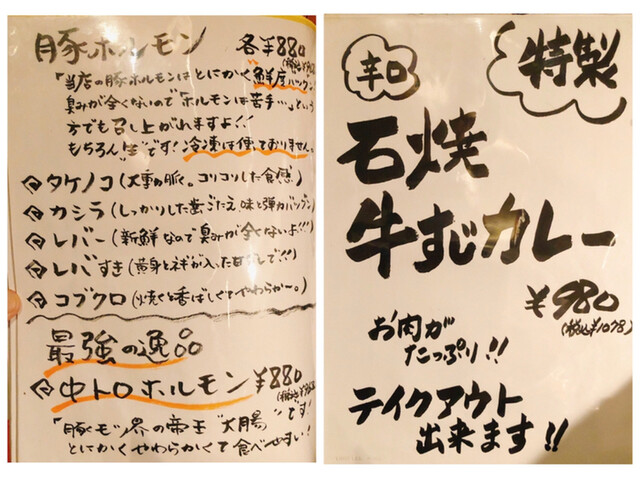 豚ホルモン 各¥880
「当店の豚ホルモンはとにかく鮮度バツグン
臭みが全くないので「ホルモンは苦手…」という
方でも召し上がれますよ!!
もちろん"生"です!冷凍は使っておりません。
タケノコ(大動脈。コリコリした食感)
カシラ(しっかりした歯ごたえ、味と弾力バツグン)
レバー(新鮮なので臭みが全くないよ!!!)
レバすき(黄身とネギが入ったタレで!!)
コブクロ(焼くと香ばしくてやわらか〜。)
最強の逸品
中トロホルモン ¥880
「豚モツ界の帝王"大腸"です!
とにかくやわらかくて食べやすい!
辛口
特製
石焼
牛すじカレー
¥980
(税込¥1078)
お肉が
たっぷり!!
テイクアウト
出来ます!!